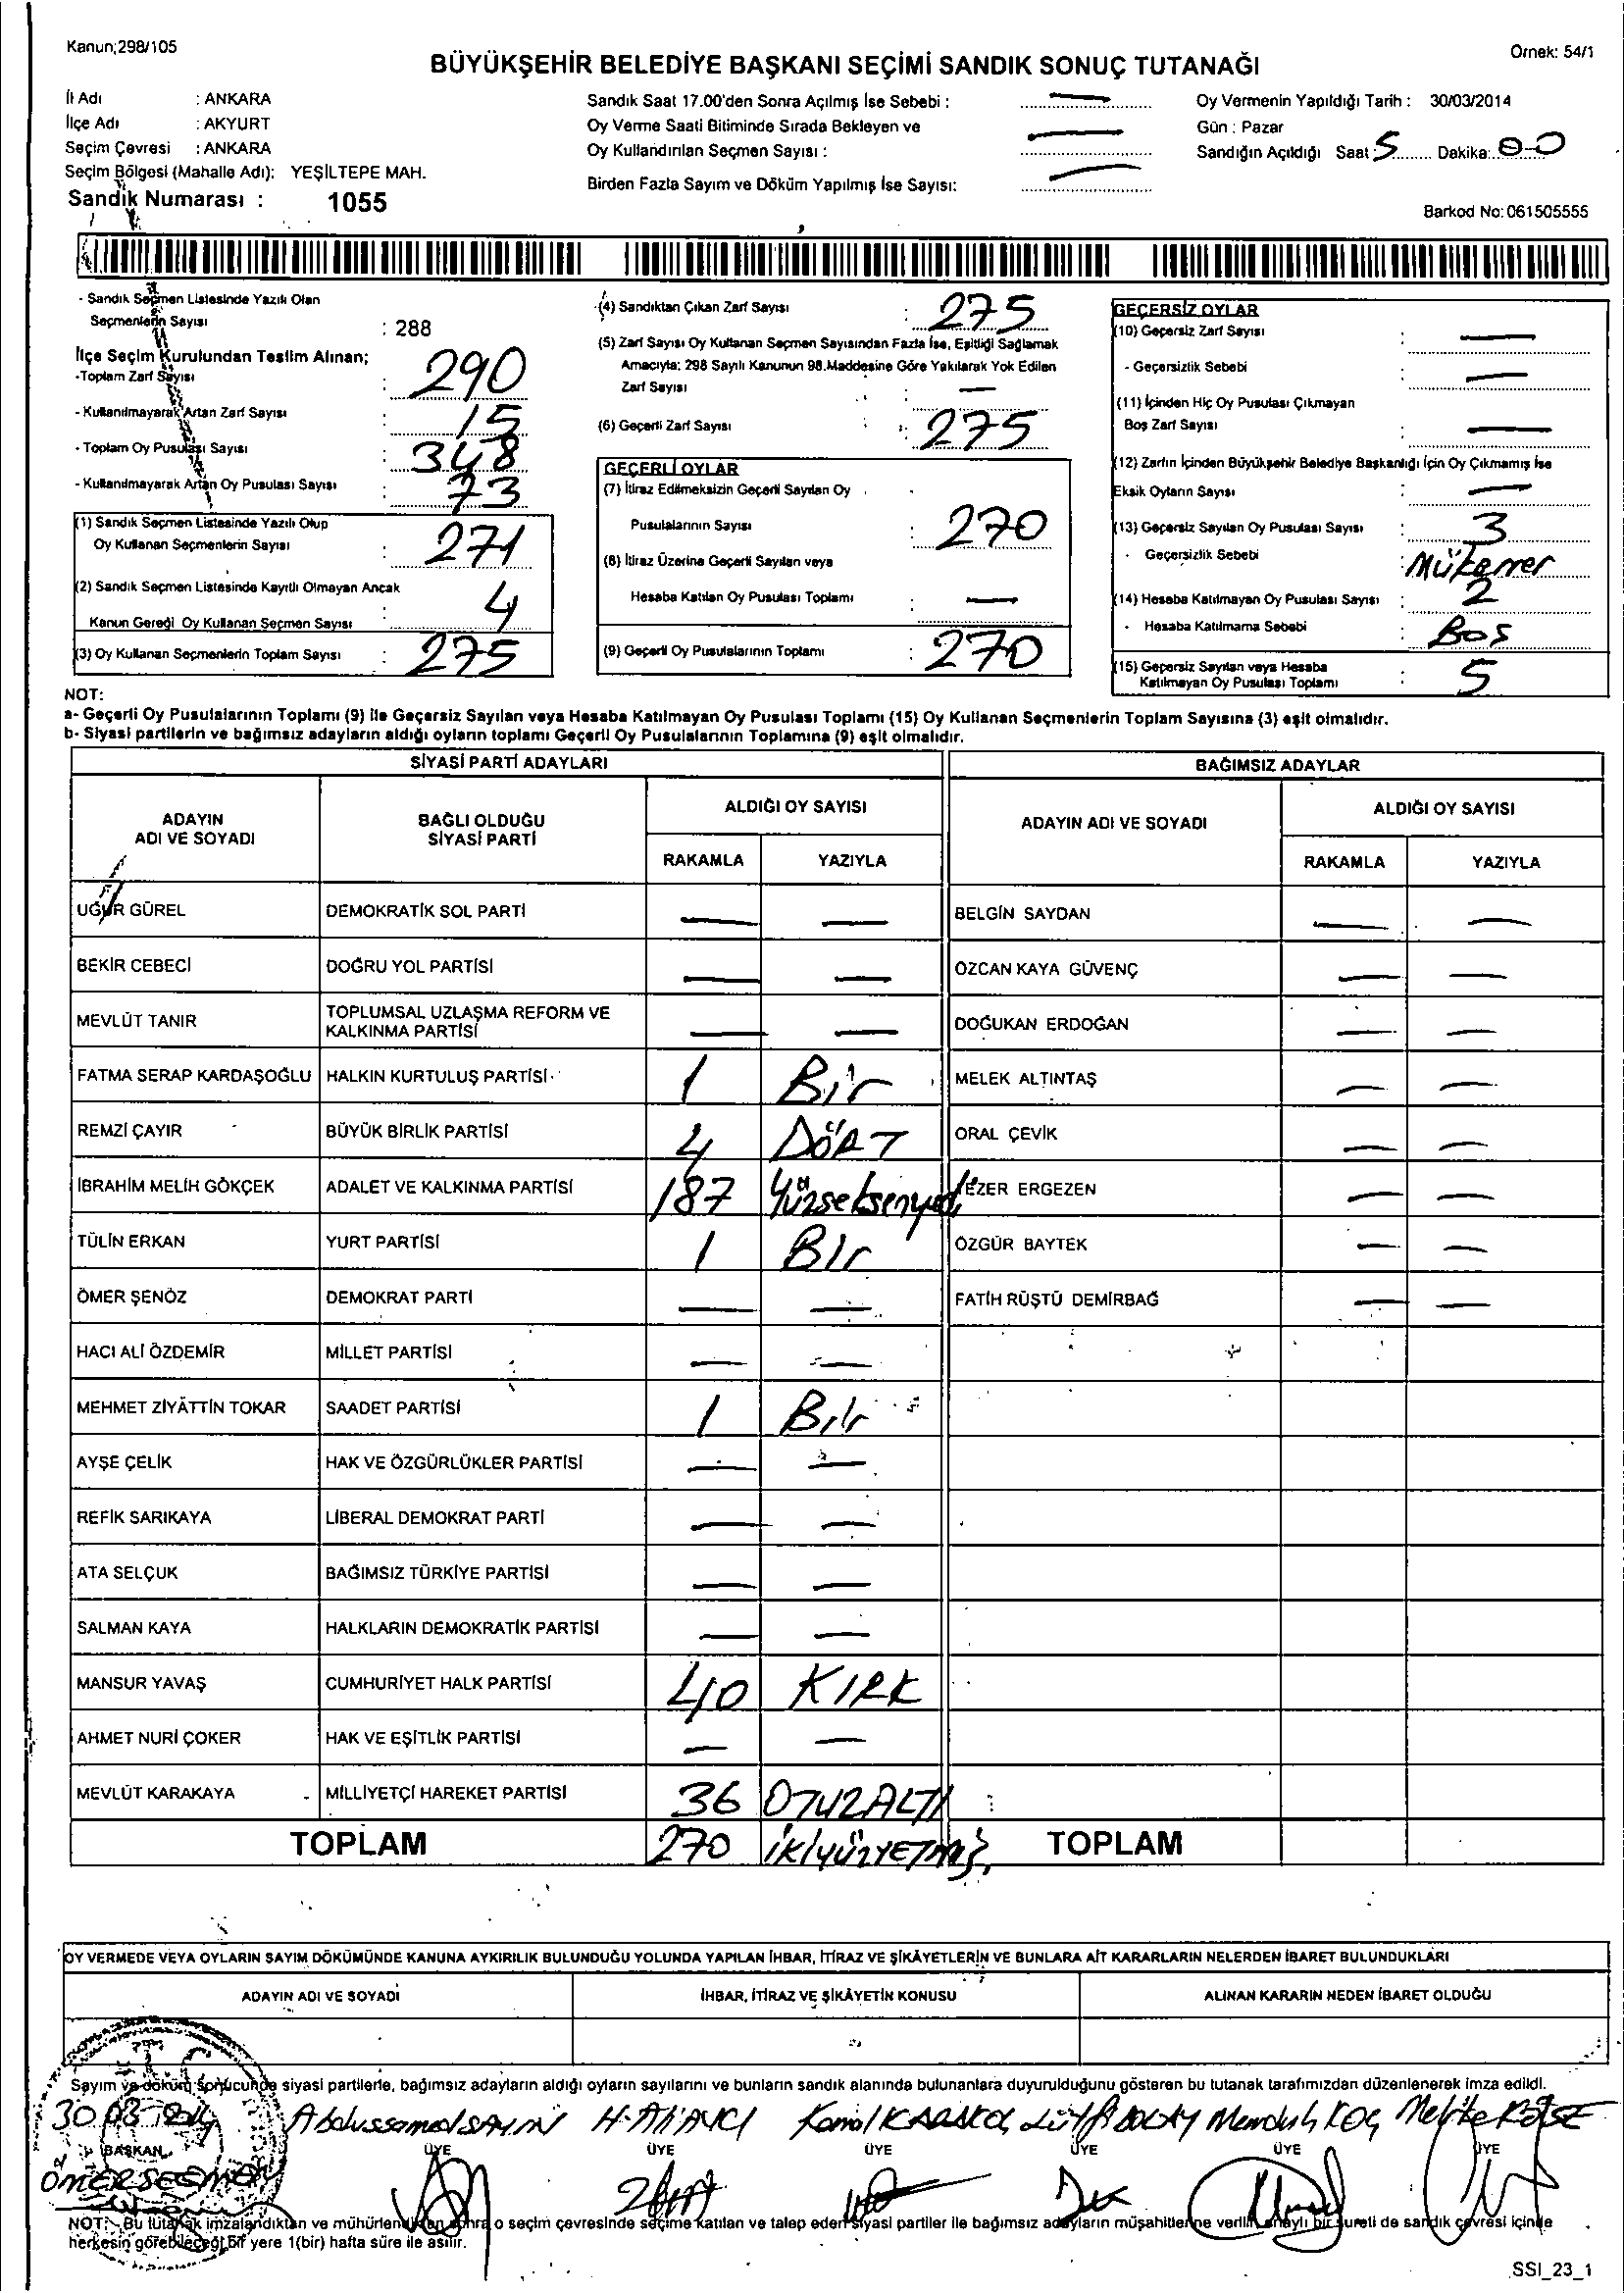 Kanun;298/105
Örnek: 54/1
BÜYÜKŞEHİR BELEDİYE BAŞKANI SEÇİMİ SANDIK SONUÇ TUTANAĞI
İl Adı : ANKARA
İlçe Adı : AKYURT
Seçim Çevresi : ANKARA
Seçim Bölgesi (Mahalle Adı): YEŞİLTEPE MAH.
Sandık Numarası : 1055
Sandık Saat 17.00'den Sonra Açılmış İse Sebebi : —
Oy Verme Saati Bitiminde Sırada Bekleyen ve
Oy Kullandırılan Seçmen Sayısı : —
Birden Fazla Sayım ve Döküm Yapılmış İse Sayısı: —
Oy Vermenin Yapıldığı Tarih : 30/03/2014
Gün : Pazar
Sandığın Açıldığı Saat 5 Dakika: 00
Barkod No: 061505555
- Sandık Seçmen Listesinde Yazılı Olan
Seçmenlerin Sayısı : 288
İlçe Seçim Kurulundan Teslim Alınan;
-Toplam Zarf Sayısı : 290
- Kullanılmayarak Artan Zarf Sayısı : 15
- Toplam Oy Pusulası Sayısı : 348
- Kullanılmayarak Artan Oy Pusulası Sayısı : 73
(1) Sandık Seçmen Listesinde Yazılı Olup
Oy Kullanan Seçmenlerin Sayısı : 271
(2) Sandık Seçmen Listesinde Kayıtlı Olmayan Ancak
Kanun Gereği Oy Kullanan Seçmen Sayısı : 4
(3) Oy Kullanan Seçmenlerin Toplam Sayısı : 275
(4) Sandıktan Çıkan Zarf Sayısı : 275
(5) Zarf Sayısı Oy Kullanan Seçmen Sayısından Fazla İse, Eşitliği Sağlamak
Amacıyla; 298 Sayılı Kanunun 98.Maddesine Göre Yakılarak Yok Edilen
Zarf Sayısı : —
(6) Geçerli Zarf Sayısı : 275
GEÇERLİ OYLAR
(7) İtiraz Edilmeksizin Geçerli Sayılan Oy
Pusulalarının Sayısı : 270
(8) İtiraz Üzerine Geçerli Sayılan veya
Hesaba Katılan Oy Pusulası Toplamı : —
(9) Geçerli Oy Pusulalarının Toplamı : 270
GEÇERSİZ OYLAR
(10) Geçersiz Zarf Sayısı : —
- Geçersizlik Sebebi : —
(11) İçinden Hiç Oy Pusulası Çıkmayan
Boş Zarf Sayısı : —
(12) Zarfın İçinden Büyükşehir Belediye Başkanlığı İçin Oy Çıkmamış İse
Eksik Oyların Sayısı : —
(13) Geçersiz Sayılan Oy Pusulası Sayısı : 3
- Geçersizlik Sebebi : Mükerrer
(14) Hesaba Katılmayan Oy Pusulası Sayısı : 2
- Hesaba Katılmama Sebebi : Boş
(15) Geçersiz Sayılan veya Hesaba
Katılmayan Oy Pusulası Toplamı : 5
NOT:
a- Geçerli Oy Pusulalarının Toplamı (9) ile Geçersiz Sayılan veya Hesaba Katılmayan Oy Pusulası Toplamı (15) Oy Kullanan Seçmenlerin Toplam Sayısına (3) eşit olmalıdır.
b- Siyasi partilerin ve bağımsız adayların aldığı oyların toplamı Geçerli Oy Pusulalarının Toplamına (9) eşit olmalıdır.
SİYASİ PARTİ ADAYLARI BAĞIMSIZ ADAYLAR
ADAYIN ADI VE SOYADI BAĞLI OLDUĞU SİYASİ PARTİ ALDIĞI OY SAYISI ADAYIN ADI VE SOYADI ALDIĞI OY SAYISI
RAKAMLA YAZIYLA RAKAMLA YAZIYLA
UĞUR GÜREL DEMOKRATİK SOL PARTİ — — BELGİN SAYDAN — —
BEKİR CEBECİ DOĞRU YOL PARTİSİ — — ÖZCAN KAYA GÜVENÇ — —
MEVLÜT TANIR TOPLUMSAL UZLAŞMA REFORM VE KALKINMA PARTİSİ — — DOĞUKAN ERDOĞAN — —
FATMA SERAP KARDAŞOĞLU HALKIN KURTULUŞ PARTİSİ 1 Bir MELEK ALTINTAŞ — —
REMZİ ÇAYIR BÜYÜK BİRLİK PARTİSİ 4 DÖRT ORAL ÇEVİK — —
İBRAHİM MELİH GÖKÇEK ADALET VE KALKINMA PARTİSİ 187 Yüzseksenyedi EZER ERGEZEN — —
TÜLİN ERKAN YURT PARTİSİ 1 BIr ÖZGÜR BAYTEK — —
ÖMER ŞENÖZ DEMOKRAT PARTİ — — FATİH RÜŞTÜ DEMİRBAĞ — —
HACI ALİ ÖZDEMİR MİLLET PARTİSİ — —
MEHMET ZİYÂTTİN TOKAR SAADET PARTİSİ 1 Bir
AYŞE ÇELİK HAK VE ÖZGÜRLÜKLER PARTİSİ — —
REFİK SARIKAYA LİBERAL DEMOKRAT PARTİ — —
ATA SELÇUK BAĞIMSIZ TÜRKİYE PARTİSİ — —
SALMAN KAYA HALKLARIN DEMOKRATİK PARTİSİ — —
MANSUR YAVAŞ CUMHURİYET HALK PARTİSİ 40 KIRK
AHMET NURİ ÇOKER HAK VE EŞİTLİK PARTİSİ — —
MEVLÜT KARAKAYA MİLLİYETÇİ HAREKET PARTİSİ 36 OTUZALTI
TOPLAM 270 İKİYÜZYETMİŞ TOPLAM
OY VERMEDE VEYA OYLARIN SAYIM DÖKÜMÜNDE KANUNA AYKIRILIK BULUNDUĞU YOLUNDA YAPILAN İHBAR, İTİRAZ VE ŞİKÂYETLERİN VE BUNLARA AİT KARARLARIN NELERDEN İBARET BULUNDUKLARI
ADAYIN ADI VE SOYADI İHBAR, İTİRAZ VE ŞİKÂYETİN KONUSU ALINAN KARARIN NEDEN İBARET OLDUĞU
Sayım ve döküm sonucunda siyasi partilerle, bağımsız adayların aldığı oyların sayılarını ve bunların sandık alanında bulunanlara duyurulduğunu gösteren bu tutanak tarafımızdan düzenlenerek imza edildi.
30.03.2014 Abdussamed SAYIN H.Ali AVCI Kemal Lütfi Memduh KOÇ Melike KÖSE
BAŞKAN ÜYE ÜYE ÜYE ÜYE ÜYE ÜYE
ÖMER SEÇMEN
NOT: Bu tutanak imzalandıktan ve mühürlendikten sonra o seçim çevresinde seçime katılan ve talep eden siyasi partiler ile bağımsız adayların müşahitlerine verilir, onaylı bir sureti de sandık çevresi içinde
herkesin görebileceği bir yere 1(bir) hafta süre ile asılır.
SSI_23_1